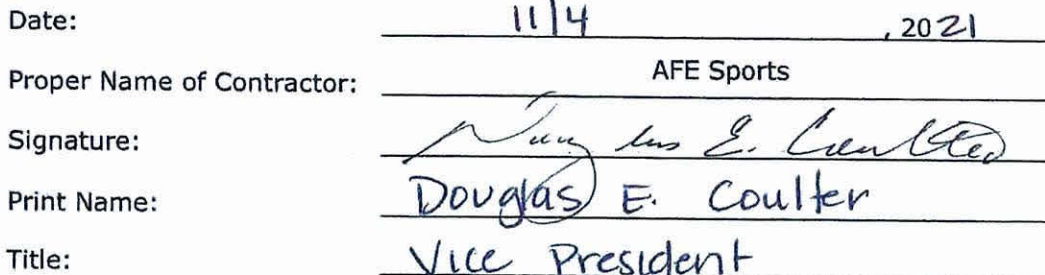 Date: 11/4, 2021
Proper Name of Contractor: AFE Sports
Signature: Douglas E. Coulter
Print Name: Douglas E. Coulter
Title: Vice President